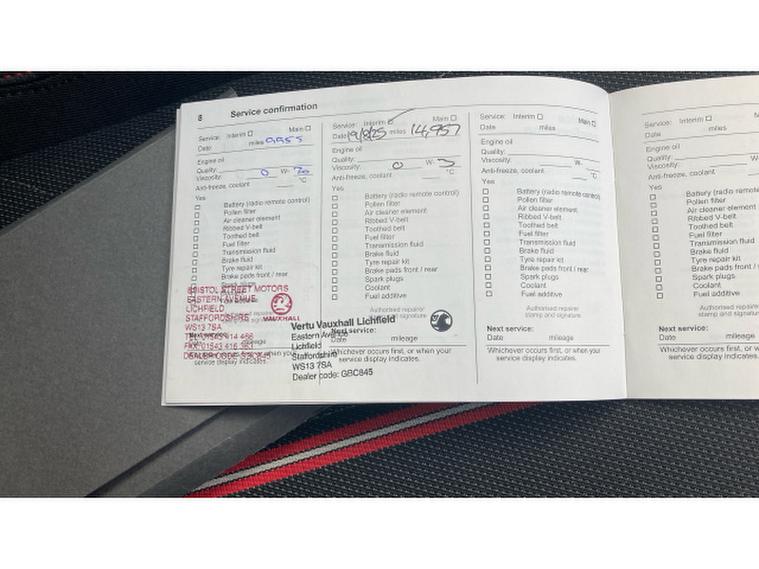 8 Service confirmation
Service: Interim Main
Date miles 9955
Engine oil
Quality:
Viscosity: 0 W-
Anti-freeze, coolant °C
Yes
Battery (radio remote control)
Pollen filter
Air cleaner element
Ribbed V-belt
Toothed belt
Fuel filter
Transmission fluid
Brake fluid
Tyre repair kit
Brake pads front / rear
Spark plugs
BRISTOL STREET MOTORS
EASTERN AVENUE
LICHFIELD
STAFFORDSHIRE
WS13 7SA
TEL 01543 414 466
VAUXHALL
service display indicates.
Service: Interim Main
Date 19/8/25 miles 14,957
Engine oil
Quality:
Viscosity: 0 W-
Anti-freeze, coolant °C
Yes
Battery (radio remote control)
Pollen filter
Air cleaner element
Ribbed V-belt
Toothed belt
Fuel filter
Transmission fluid
Brake fluid
Tyre repair kit
Brake pads front / rear
Spark plugs
Coolant
Fuel additive
Authorised repairer
stamp and signature
Vertu Vauxhall Lichfield
Eastern Avenue
Lichfield
Staffordshire
WS13 7SA
Dealer code: GBC845
Next service:
Date mileage
Whichever occurs first, or when your
service display indicates.
Service: Interim Main
Date miles
Engine oil
Quality:
Viscosity: W-
Anti-freeze, coolant °C
Yes
Battery (radio remote control)
Pollen filter
Air cleaner element
Ribbed V-belt
Toothed belt
Fuel filter
Transmission fluid
Brake fluid
Tyre repair kit
Brake pads front / rear
Spark plugs
Coolant
Fuel additive
Authorised repairer
stamp and signature
Next service:
Date mileage
Whichever occurs first, or when your
service display indicates.
Service: Interim
Date miles
Engine oil
Quality:
Viscosity:
Anti-freeze, coolant
Yes
Battery (radio remote
Pollen filter
Air cleaner element
Ribbed V-belt
Toothed belt
Fuel filter
Transmission fluid
Brake fluid
Tyre repair kit
Brake pads front /
Spark plugs
Coolant
Fuel additive
Authorised
stamp and
Next service:
Date mileage
Whichever occurs first, or
service display indicates.